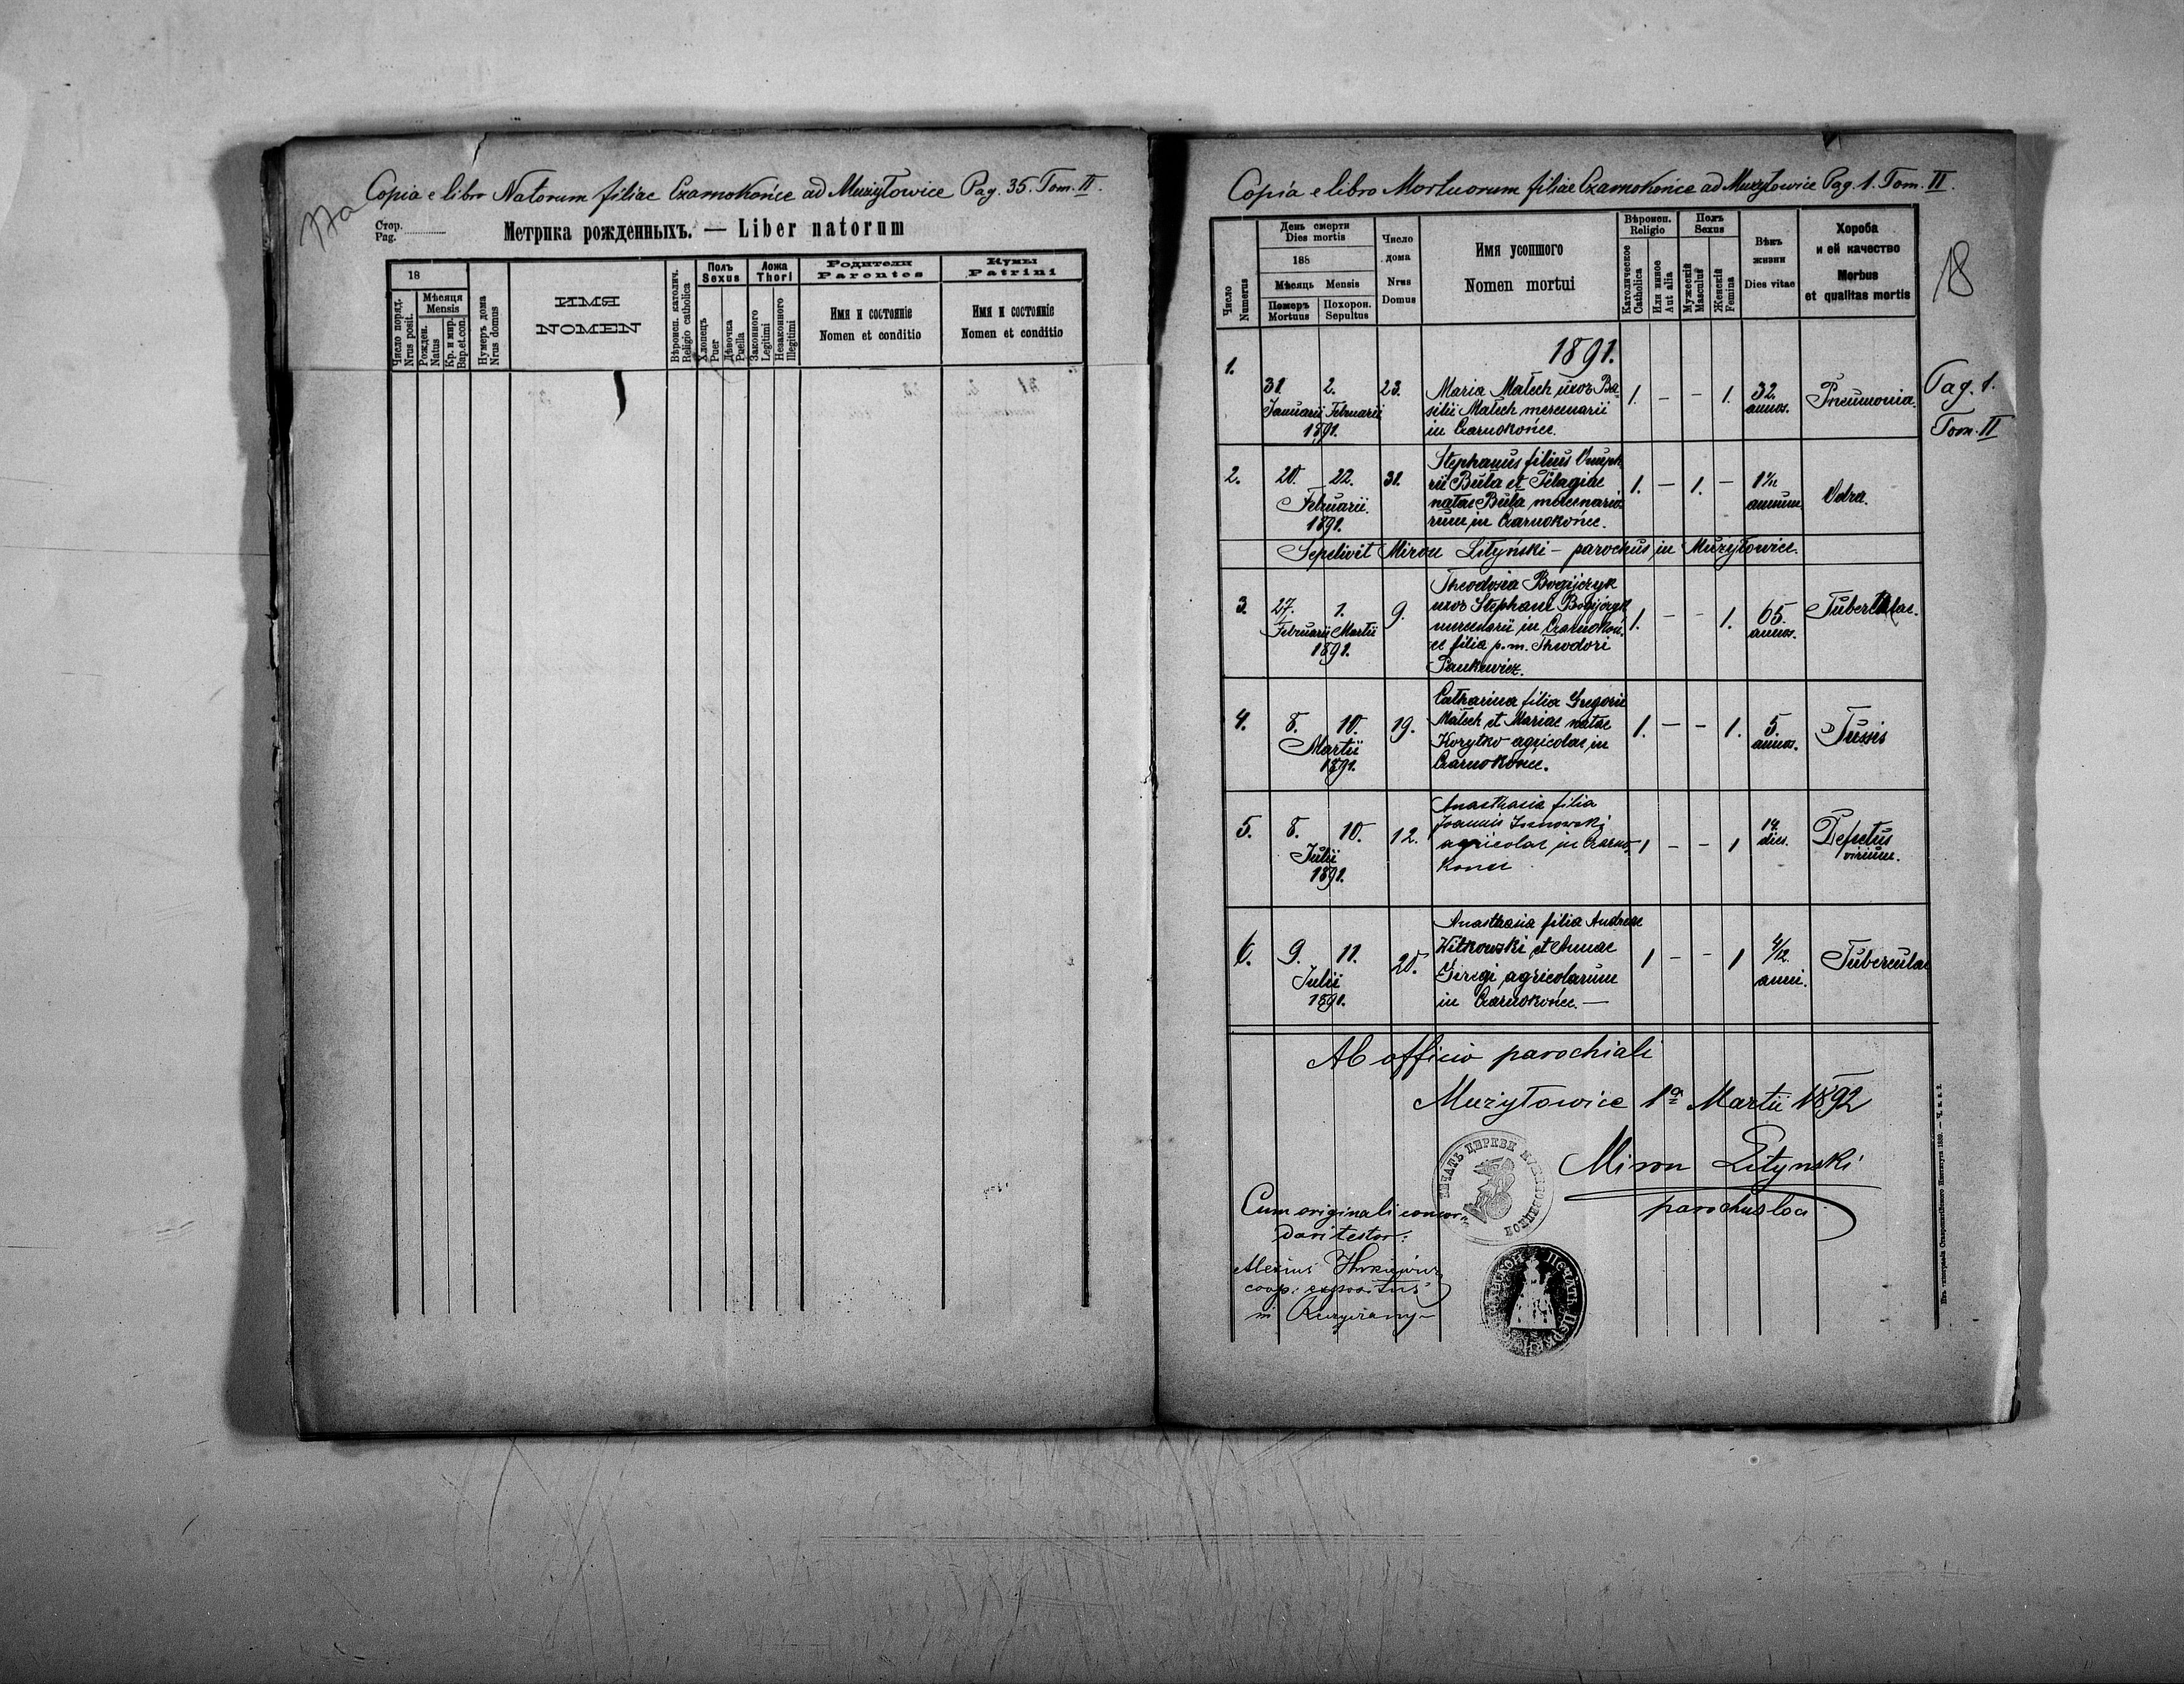 Copia e libro Natorum filiae Czarnokońce ad Mużyłowice Pag. 35. Tom. II.
Стор.
Pag.
Метрика рожденныхъ. — Liber natorum
18
Число поряд.
Nrus posit.
Мѣсяця
Mensis
Рожден.
Natus
Кр. и мѵр.
Bap.et.con.
Нумеръ дома
Nrus domus
ИМЯ
NOMEN
Вѣроисп. католич.
Religio catholica
Полъ
Sexus
Хлопецъ
Puer
Дѣвочка
Puella
Ложа
Thori
Законного
Legitimi
Незаконного
Illegitimi
Родители
Parentes
Имя и состояніе
Nomen et conditio
Кумы
Patrini
Имя и состояніе
Nomen et conditio
Copia e libro Mortuorum filiae Czarnokońce ad Mużyłowice Pag. 1. Tom. II.
18
Число
Numerus
День смерти
Dies mortis
188
Мѣсяць Mensis
Померъ
Mortuus
Похорон.
Sepultus
Число
дома
Nrus
Domus
Имя усопшого
Nomen mortui
Вѣроисп.
Religio
Католическое
Catholica
Или инное
Aut alia
Полъ
Sexus
Мужескій
Masculus
Женскій
Femina
Вѣкъ
жизни
Dies vitae
Хороба
и ей качество
Morbus
et qualitas mortis
1891.
1. 31 2. 23. Maria Małech uxor Ba- 1. — — 1. 32 Pneumonia.
Januarii Februarii silii Małech mercenarii annos.
1891. in Czarnokońce.
Pag. 1.
Tom. II
Stephanus filius Onuph
2. 20. 22. 31. rii Buła et Pelagiae 1. — 1. — annum Odra.
Februarii. natae Buła mercenario-
1891. rum in Czarnokońce.
Sepelivit Miron Lityński — parochus in Mużyłowice.
Theodosia
3. 27. 1. 9. uxor Stephani 1. — — 1. 65. Tuberculae.
Februarii Martii mercenarii in Czarnokoń annos.
1891. ce filia p. m. Theodori
Pankiewicz.
Catharina filia Gregorii
4. 8. 10. 19. Małech et Mariae natae 1. — — 1. 5. Tussis
Martii Korytko agricolae in annos.
1891. Czarnokońce.
Anasthasia filia
5. 8. 10. 12. Joannis 1 — — 1 14 Defectus
Julii agricolae in Czarno- dies. virium.
1891. konce
Anasthasia filia Andreae
6. 9. 11. 20. Witkowski et Annae 1 — — 1 4/12 Tuberculae
Julii agricolarum anni.
1891. in Czarnokońce. —
Ab officio parochiali
Mużyłowice 1a Martii 1892
Miron Lityński
parochus loci
Cum originali concor-
dari testor:
Alexius
coop. expositus
in